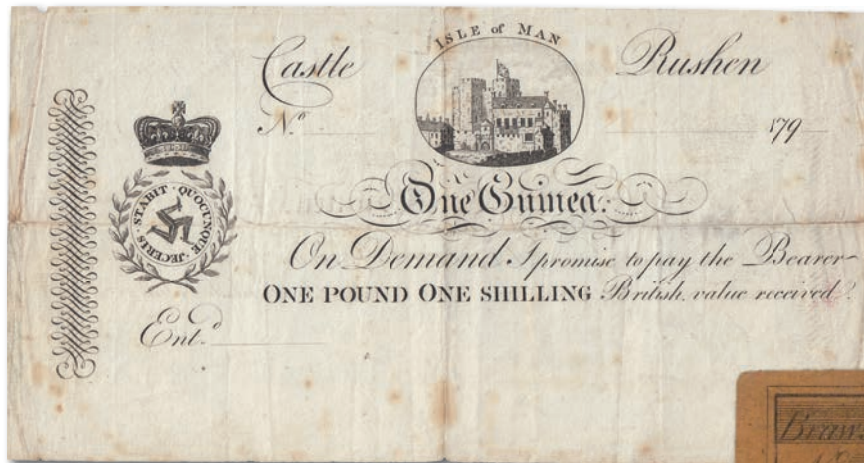 ISLE of MAN
Castle Rushen
No 179
STABIT · QUOCUNQUE · JECERIS ·
One Guinea:
On Demand I promise to pay the Bearer
ONE POUND ONE SHILLING British, value received.
Entd.